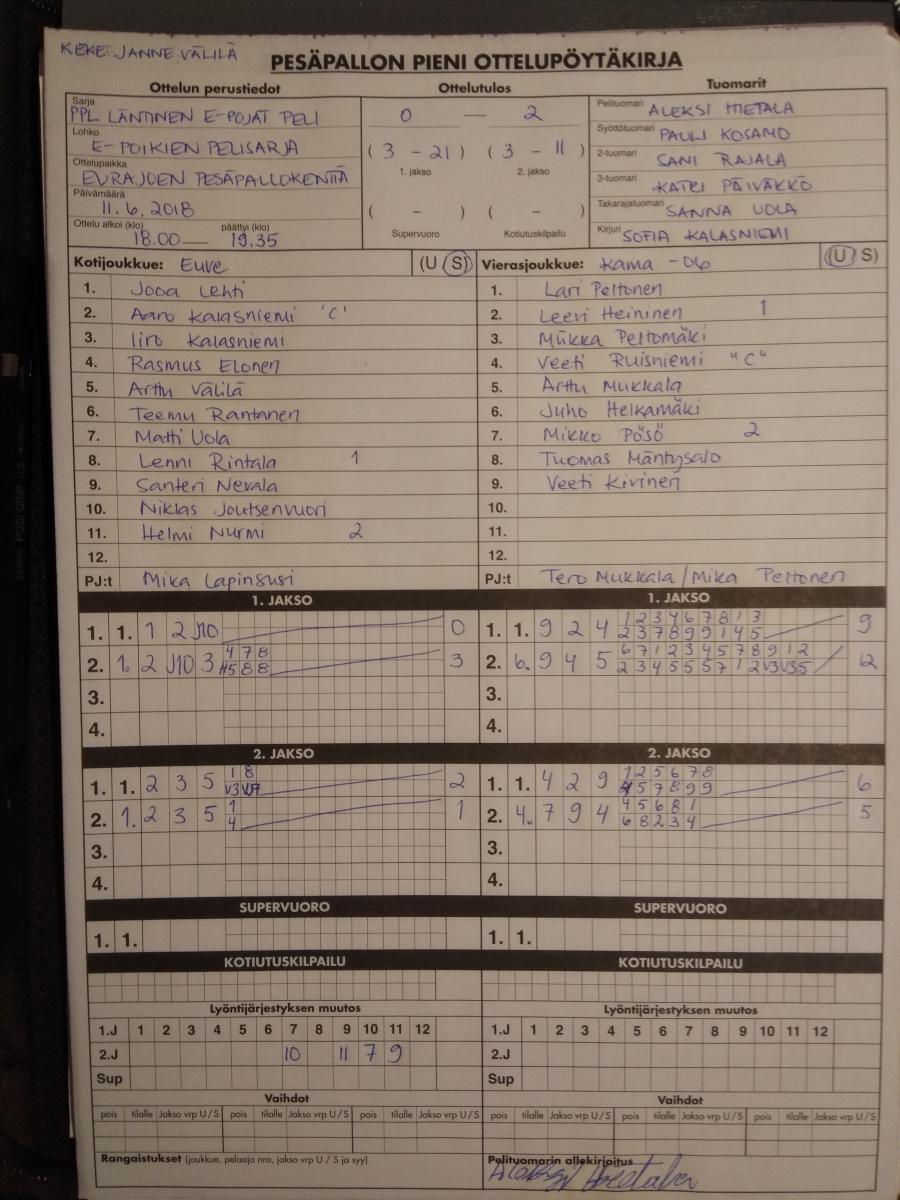 KEKE JANNE VÄLILÄ
PESÄPALLON PIENI OTTELUPÖYTÄKIRJA
Ottelun perustiedot Ottelutulos Tuomarit
Sarja
PPL LÄNTINEN E-POJAT PELI
Lohko
E-POIKIEN PELISARJA
Ottelupaikka
EURAJOEN PESÄPALLOKENTTÄ
Päivämäärä
11.6.2018
Ottelu alkoi (klo) päättyi (klo)
18.00 — 19.35
0 — 2
(3 - 21) (3 - 11)
1. jakso 2. jakso
( - ) ( - )
Supervuoro Kotiutuskilpailu
Pelituomari ALEKSI HIETALA
Syöttötuomari PAULI KOSAMO
2-tuomari SANI RAJALA
3-tuomari KATRI PÄIVÄKKÖ
Takarajatuomari SANNA UOLA
Kirjuri SOFIA KALASNIEMI
Kotijoukkue: Euve (U S)
1. Jooa Lehti
2. Aaro Kalasniemi 'C'
3. Iiro Kalasniemi
4. Rasmus Elonen
5. Arttu Välilä
6. Teemu Rantanen
7. Matti Uola
8. Lenni Rintala 1
9. Santeri Nevala
10. Niklas Joutsenvuori
11. Helmi Nurmi 2
12.
PJ:t Mika Lapinsusi
Vierasjoukkue: Kama -06 (U S)
1. Lari Peltonen
2. Leevi Heininen 1
3. Miikka Peltomäki
4. Veeti Ruisniemi "C"
5. Arttu Mukkala
6. Juho Helkamäki
7. Mikko Pösö 2
8. Tuomas Mäntysalo
9. Veeti Kivinen
10.
11.
12.
PJ:t Tero Mukkala / Mika Peltonen
1. JAKSO
1. 1. 1 2 J10 0
2. 1. 2 J10 3 4 7 8 3
5 8 8
3.
4.
1. JAKSO
1. 1. 9 2 4 1 2 3 4 6 7 8 1 3 9
2 3 7 8 9 9 1 4 5
2. 6. 9 4 5 6 7 1 2 3 4 5 7 8 9 1 2 12
2 3 4 5 5 5 7 1 2 V3 V3 5
3.
4.
2. JAKSO
1. 1. 2 3 5 1 8 2
V3
2. 1. 2 3 5 1 1
4
3.
4.
2. JAKSO
1. 1. 4 2 9 1 2 5 6 7 8 6
5 7 8 9 9
2. 4. 7 9 4 4 5 6 8 1 5
6 8 2 3 4
3.
4.
SUPERVUORO SUPERVUORO
1. 1. 1. 1.
KOTIUTUSKILPAILU KOTIUTUSKILPAILU
Lyöntijärjestyksen muutos Lyöntijärjestyksen muutos
1.J 1 2 3 4 5 6 7 8 9 10 11 12 1.J 1 2 3 4 5 6 7 8 9 10 11 12
2.J 10 11 7 9 2.J
Sup Sup
Vaihdot Vaihdot
pois tilalle Jakso vrp U/S pois tilalle Jakso vrp U/S pois tilalle Jakso vrp U/S pois tilalle Jakso vrp U/S pois tilalle Jakso vrp U/S pois tilalle Jakso vrp U/S
Rangaistukset (joukkue, pelaaja nro, jakso vrp U / S ja syy) Pelituomarin allekirjoitus